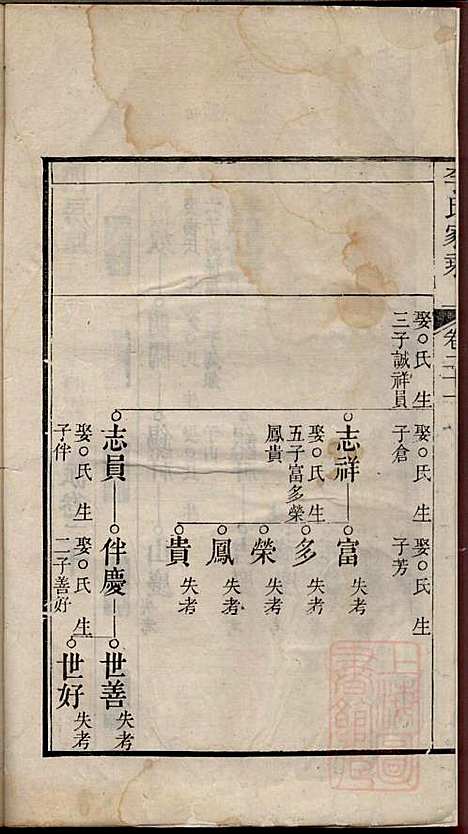 李氏家乘
卷二十一
娶○氏生
三子誠祥員
子倉
娶○氏生
子芳
志祥
娶○氏生
五子富多榮
鳳貴
富
失考
多
失考
榮
失考
鳳
失考
貴
失考
志員
娶○氏生
子伴
伴慶
娶○氏生
二子善好
世善
失考
世好
失考